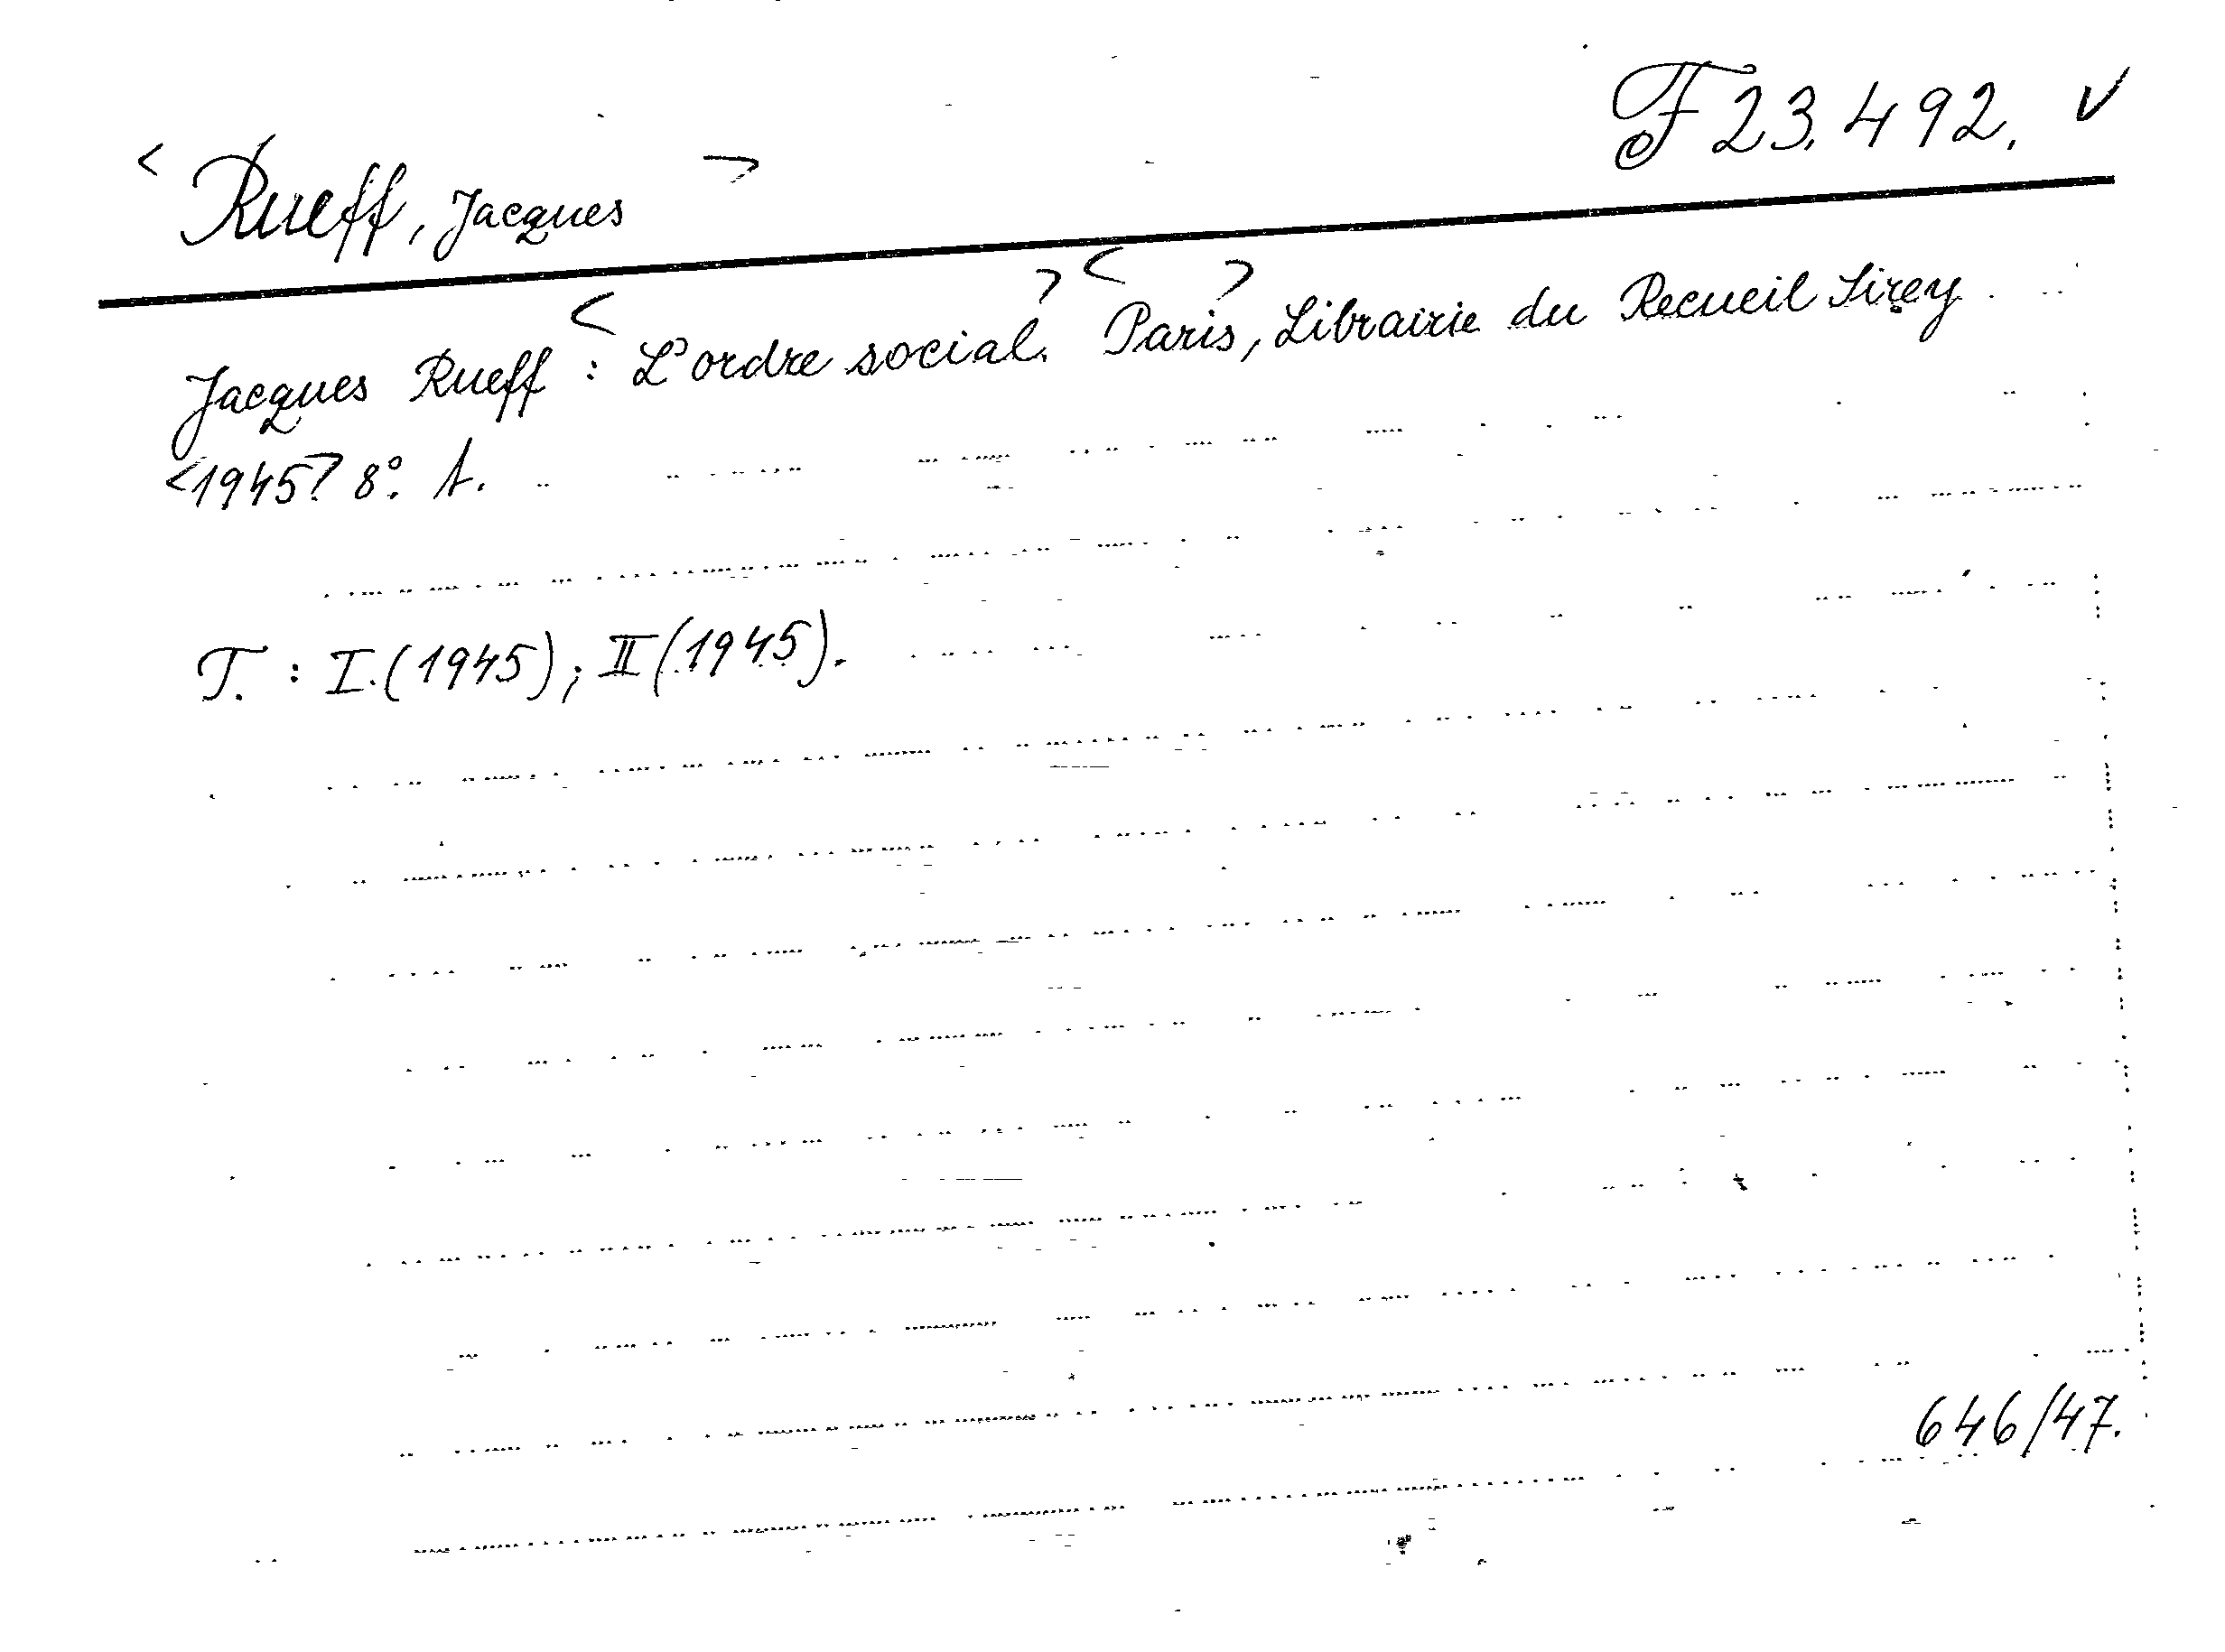 F 23.492. ✓
< Rueff, Jacques >
Jacques Rueff : <L'ordre social.> <Paris>, Librairie du Recueil Sirey
<1945> 8°. t.
T. : I. (1945); II (1945).
646/47.